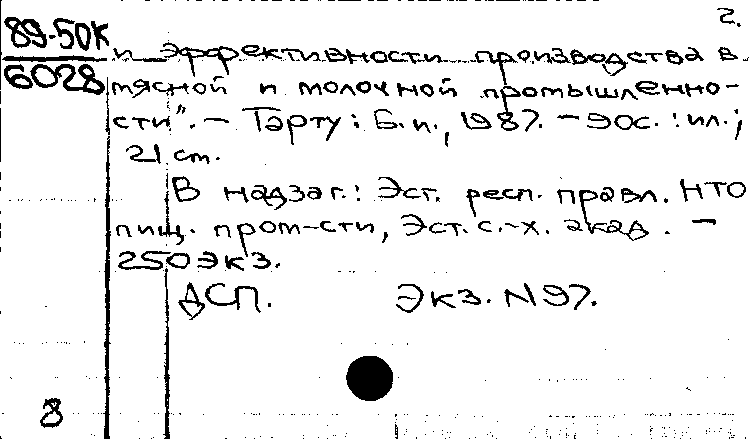 2.
89-50К
6028
и эффективности производства в
мясной и молочной промышленно-
сти". – Тарту : Б.и., 1987. – 90с. : ил. ;
21 ст.
В надзаг.: Эст. респ. правл. НТО
пищ. пром-сти, Эст. с.-х. акад. –
250 экз.
ДСП. Экз. N 97.
8